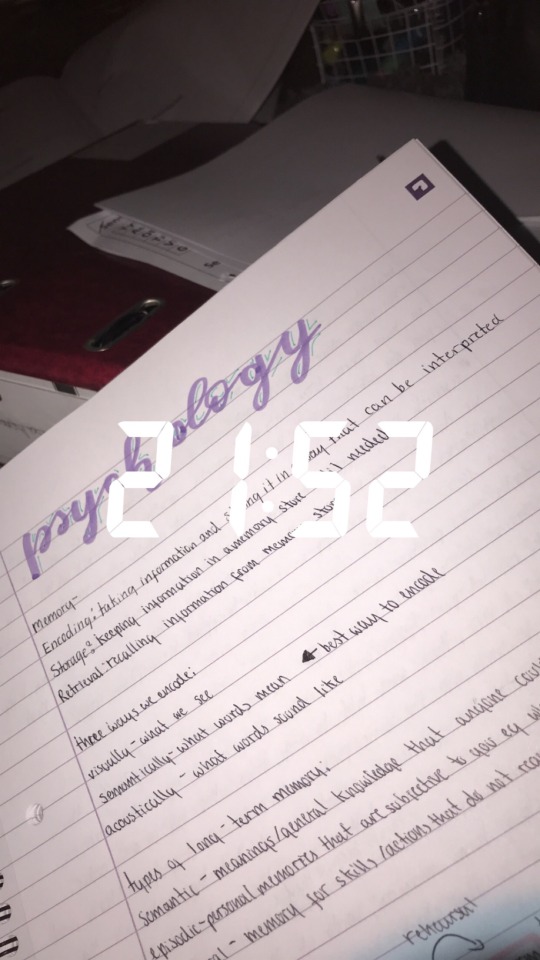 psychology
21:52
memory-
Encoding: taking information and storing it in a way that can be interpreted
Storage: keeping information in a memory store until needed
Retrieval: recalling information from memory store
three ways we encode:
visually - what we see
semantically - what words mean ← best way to encode
acoustically - what words sound like
types of long-term memory:
semantic - meanings/general knowledge that anyone
episodic - personal memories that are subjective to you eg
- memory for skills/actions that do not
rehearsal